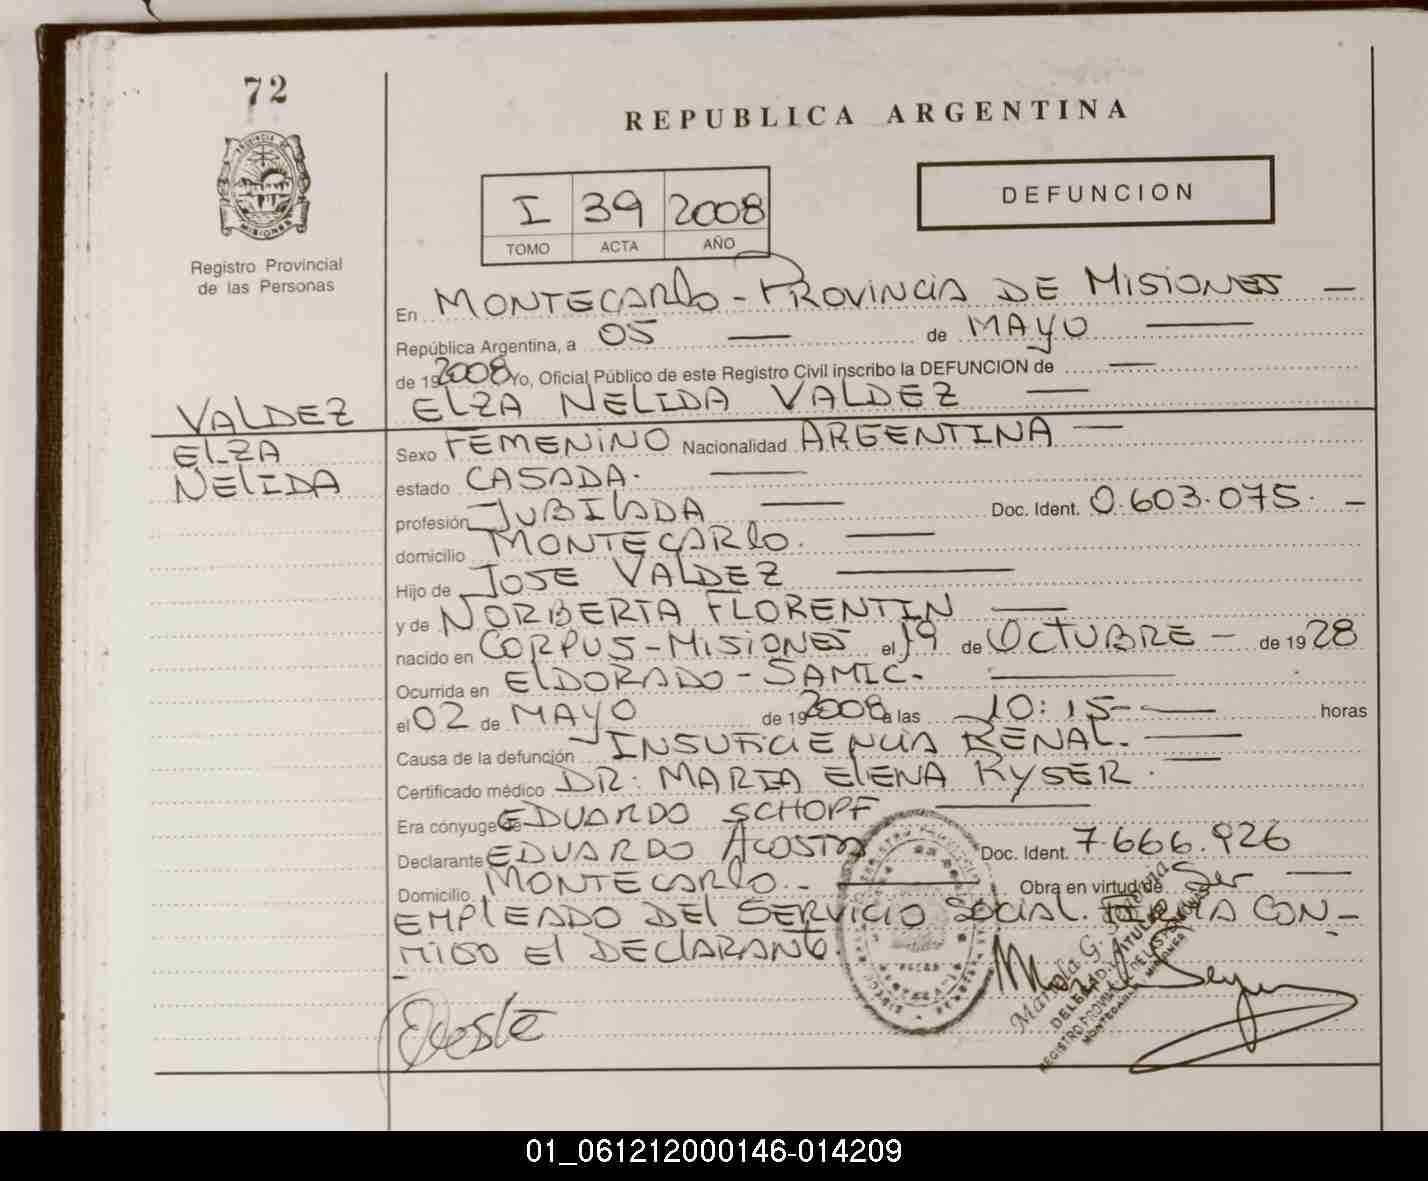 72
REPUBLICA ARGENTINA
PROVINCIA DE
MISIONES
Registro Provincial
de las Personas
I 39 2008
TOMO ACTA AÑO
DEFUNCION
En MONTECARLO - PROVINCIA DE MISIONES —
República Argentina, a 05 — de MAYO —
de 19 2008 Yo, Oficial Público de este Registro Civil inscribo la DEFUNCION de —
VALDEZ ELZA NELIDA VALDEZ —
ELZA Sexo FEMENINO Nacionalidad ARGENTINA —
NELIDA estado CASADA. —
profesión JUBILADA — Doc. Ident. 0.603.075. —
domicilio MONTECARLO. —
Hijo de JOSE VALDEZ —
y de NORBERTA FLORENTIN —
nacido en CORPUS - MISIONES el 19 de OCTUBRE — de 1928
Ocurrida en ELDORADO - SAMIC. —
el 02 de MAYO de 19 2008 a las 10:15 — horas
Causa de la defunción INSUFICIENCIA RENAL. —
Certificado médico DR: MARIA ELENA KYSER. —
Era cónyuge de EDUARDO SCHOPF —
Declarante EDUARDO ACOSTA Doc. Ident. 7.666.926
Domicilio MONTECARLO. — Obra en virtud de Ser —
EMPLEADO DEL SERVICIO SOCIAL. FIRMA CON-
MIGO El DECLARANTE.
DELEGADA TITULAR
REGISTRO PROVINCIAL DE LAS PERSONAS
MONTECARLO MISIONES
01_061212000146-014209